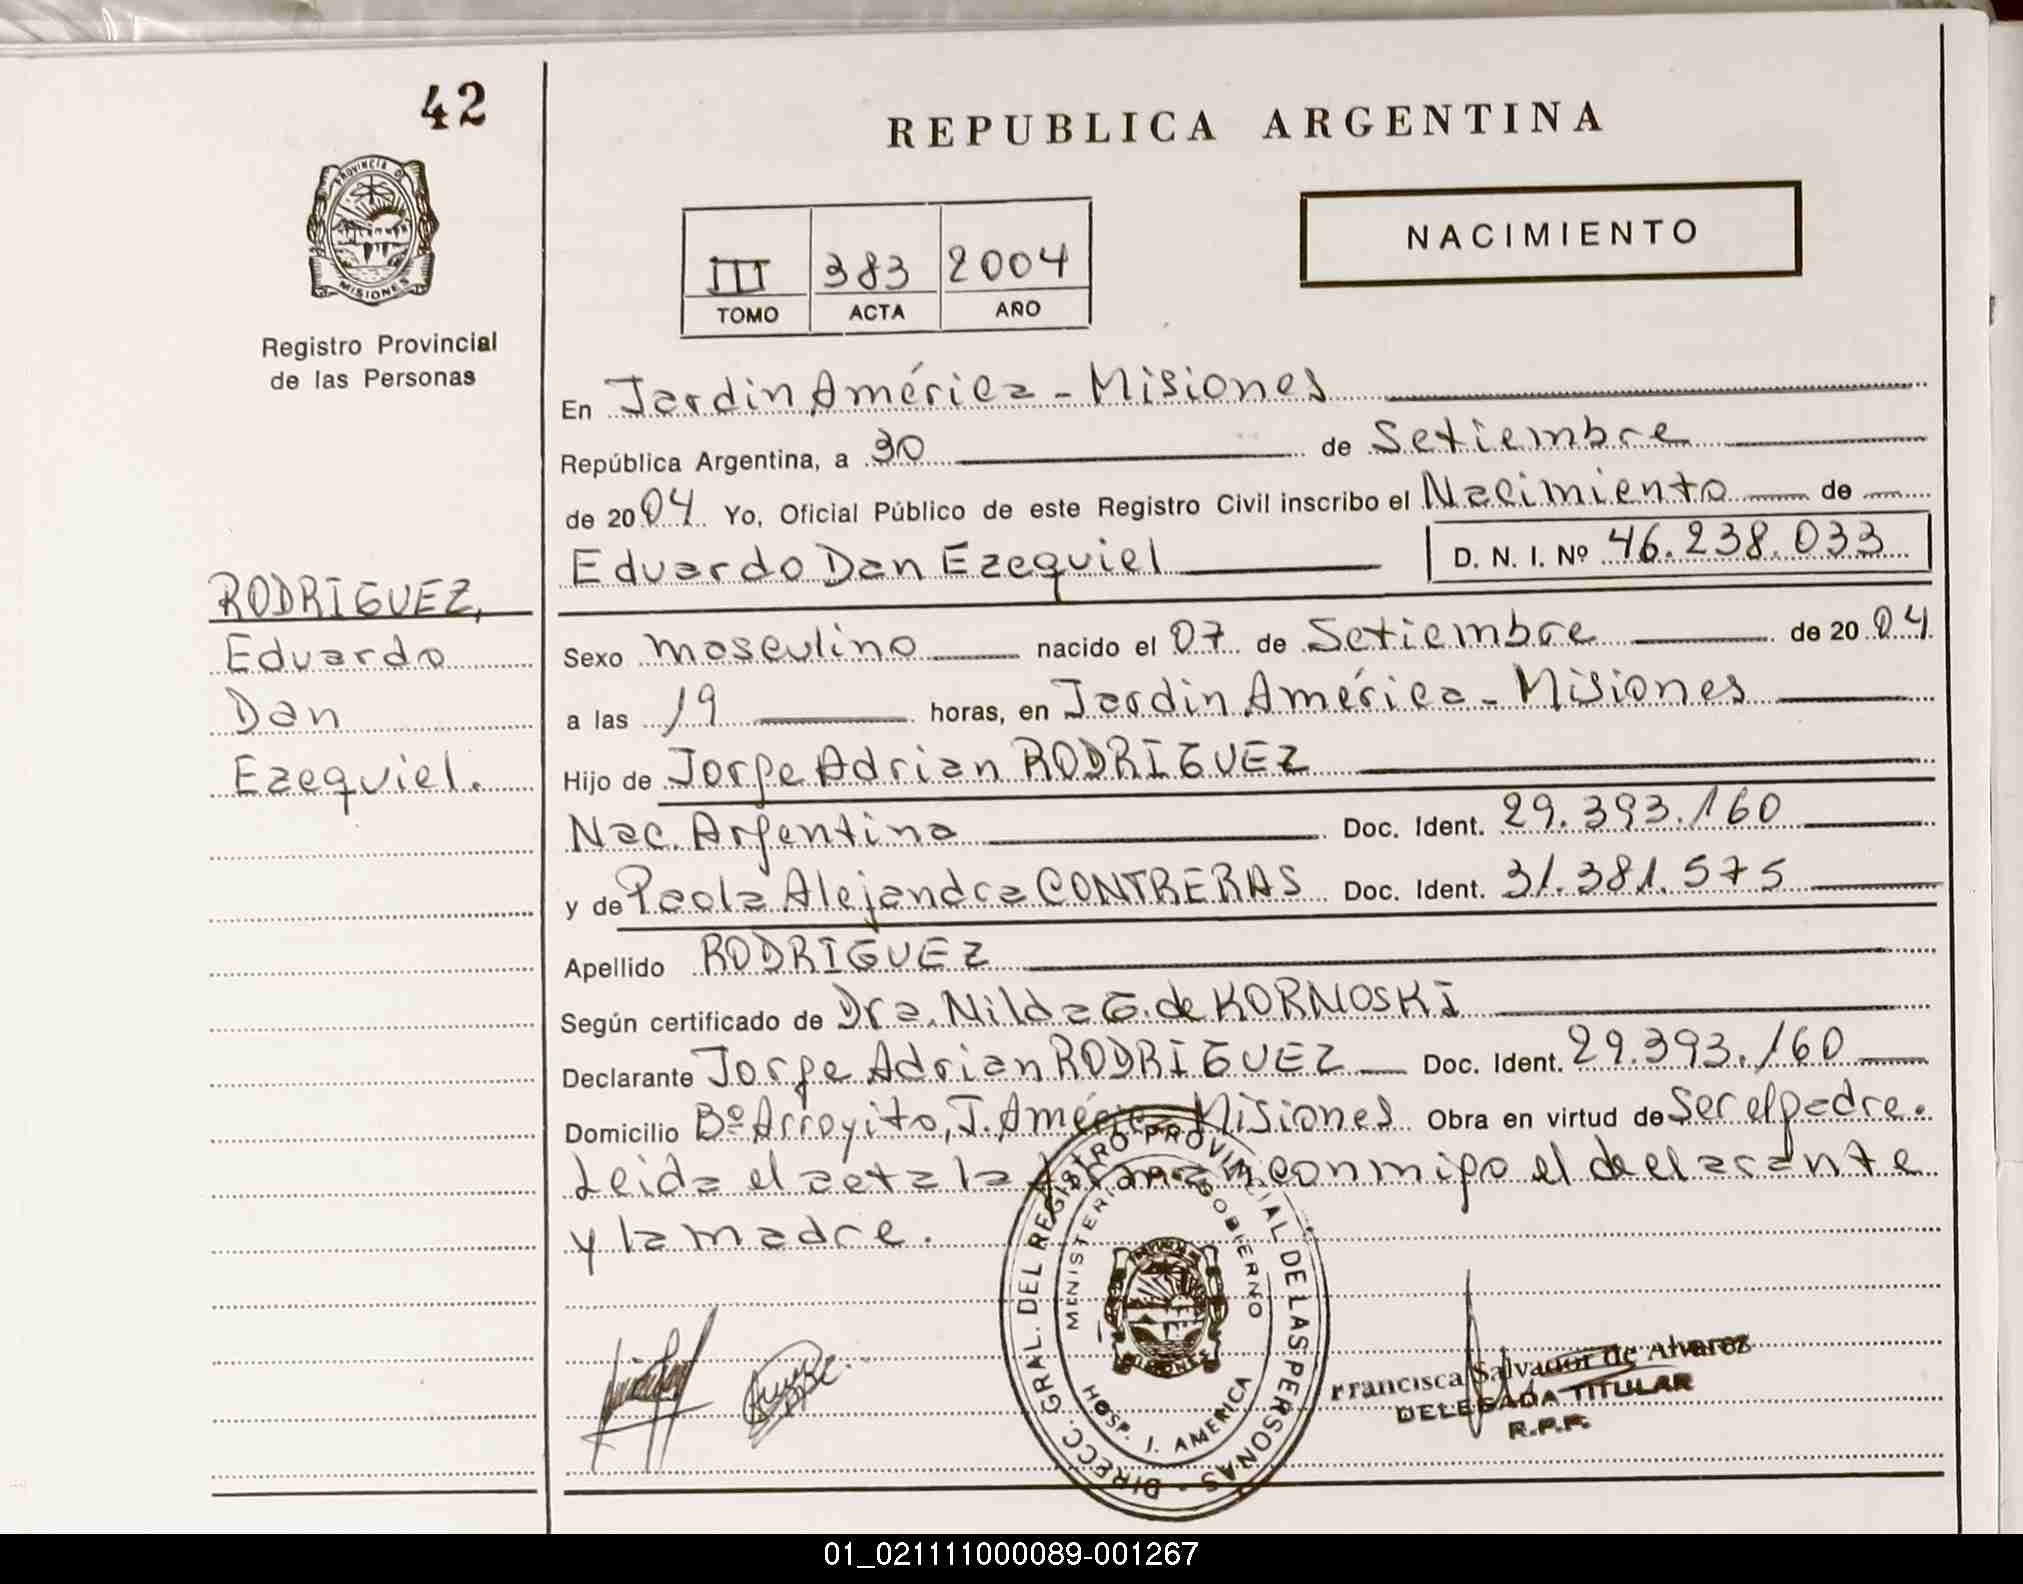 42
REPUBLICA ARGENTINA
NACIMIENTO
III 383 2004
TOMO ACTA AÑO
PROVINCIA DE
MISIONES
Registro Provincial
de las Personas
En Jardin América - Misiones
República Argentina, a 30 de Setiembre
de 2004 Yo, Oficial Público de este Registro Civil inscribo el Nacimiento de
Eduardo Dan Ezequiel D. N. I. Nº 46.238.033
RODRIGUEZ,
Eduardo
Dan
Ezequiel.
Sexo masculino nacido el 07 de Setiembre de 2004
a las 19 horas, en Jardin América - Misiones
Hijo de Jorge Adrian RODRIGUEZ
Nac. Argentina Doc. Ident. 29.393.160
y de Paola Alejandra CONTRERAS Doc. Ident. 31.381.575
Apellido RODRIGUEZ
Según certificado de Dra. Nilda G. de KORNOSKI
Declarante Jorge Adrian RODRIGUEZ Doc. Ident. 29.393.160
Domicilio Bº Arroyito, J. América Misiones Obra en virtud de Ser el padre.
Leida el acta la firman conmigo el declarante
y la madre.
DIRECC. GRAL. DEL REGISTRO PROVINCIAL DE LAS PERSONAS
MINISTERIO GOBIERNO
HOSP. J. AMERICA
MISIONES
Francisca Salvador de Alvarez
DELEGADA TITULAR
R.P.P.
01_021111000089-001267